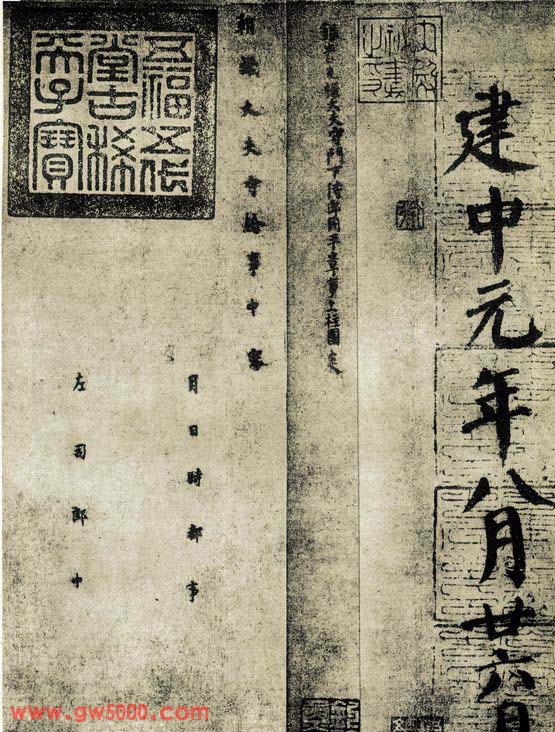 建中元年八月廿六日
銀青光祿大夫守門下侍郎同平章事上柱國炎
朝議大夫守給事中審
月日時都事
左司郎中
五福五代堂古稀天子寶
www.gw5000.com